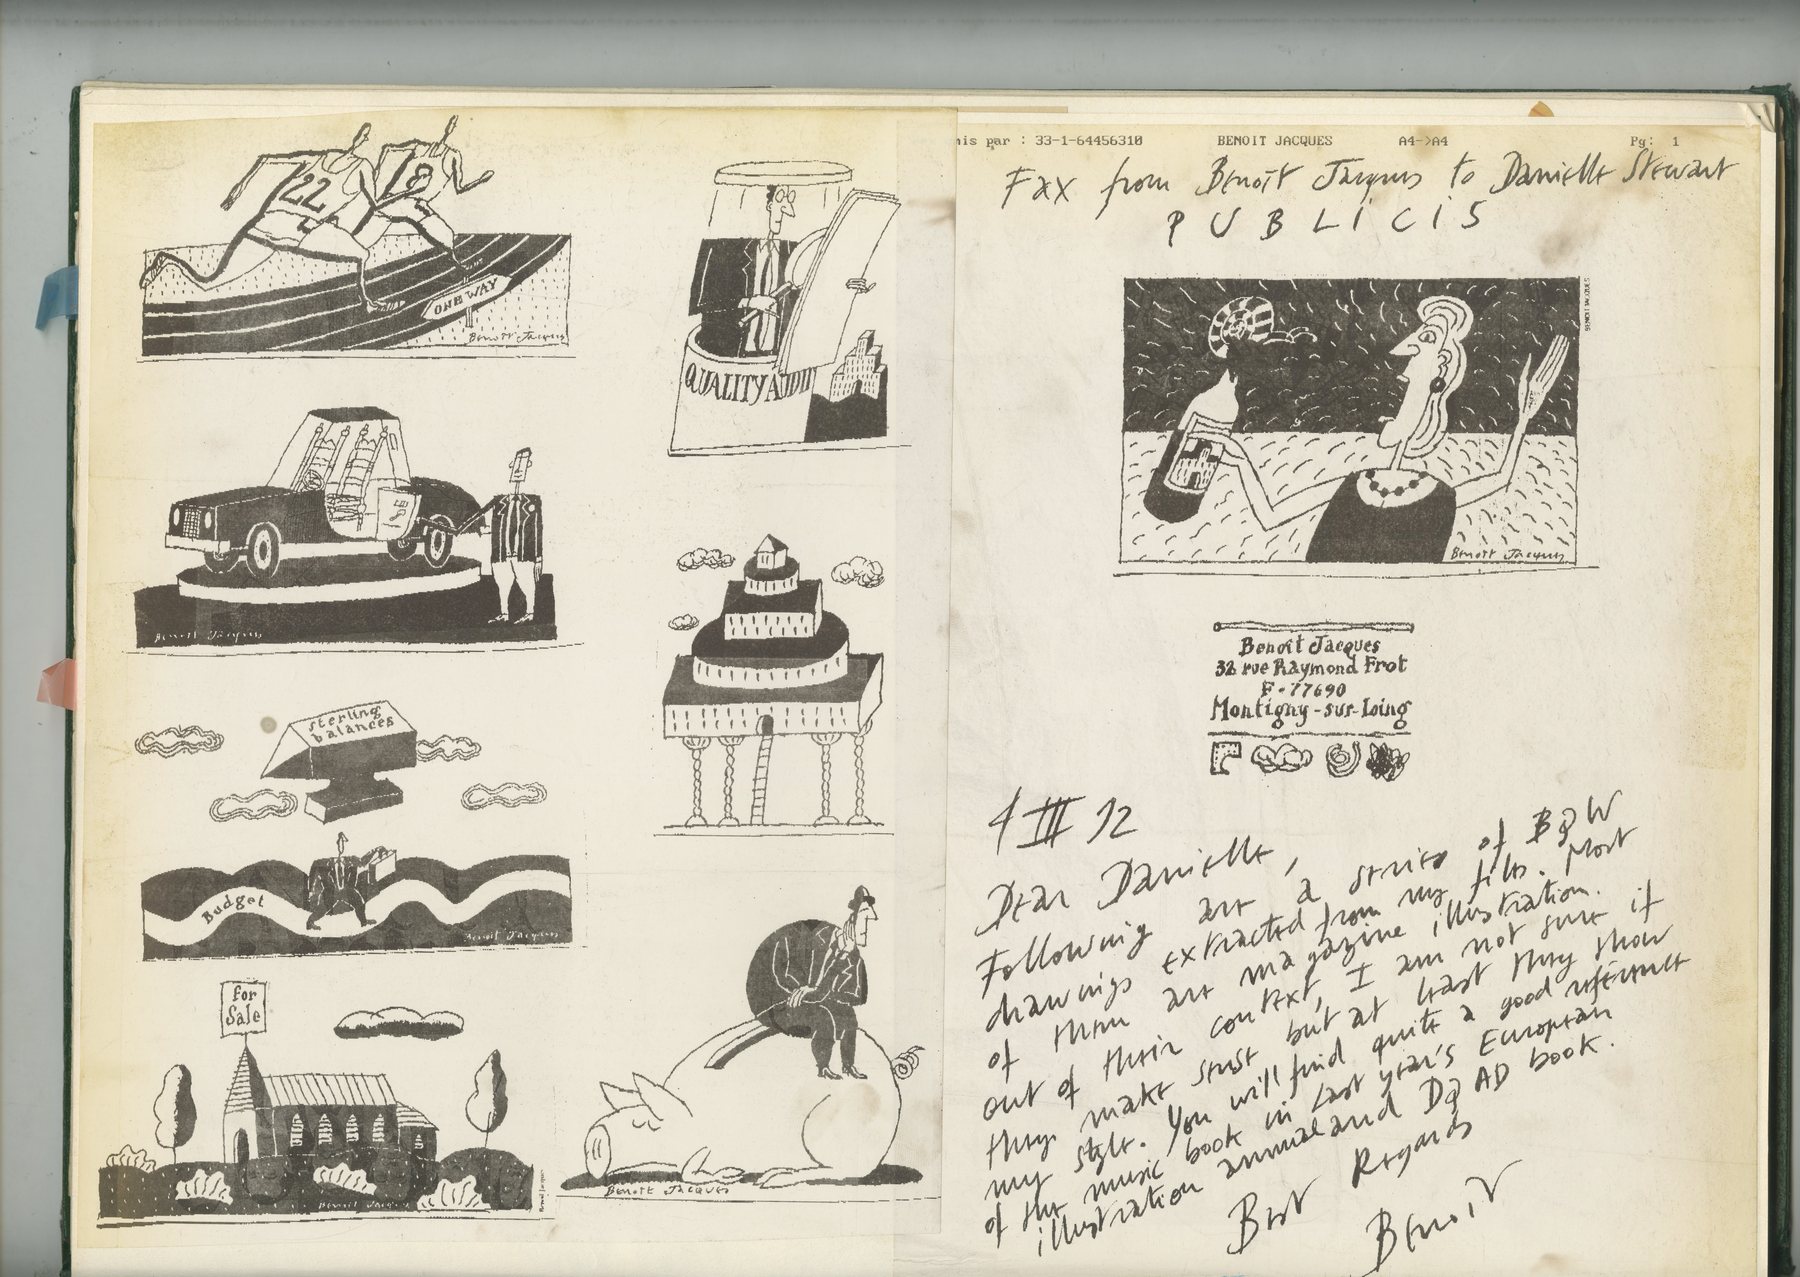 22
18
ONE WAY
Benoît Jacques
QUALITY AUDIT
Benoit Jacques
sterling
balances
Budget
Benoit Jacques
for
Sale
Benoit Jacques
Benoit Jacques
Benoit Jacques
mis par : 33-1-64456310 BENOIT JACQUES A4->A4 Pg: 1
Fax from Benoît Jacques to Danielle Stewart
PUBLICIS
BENOIT JACQUES
Benoit Jacques
Benoît Jacques
32 rue Raymond Frot
F-77690
Montigny-sur-Loing
4 III 92
Dear Danielle,
Following are a series of B&W
drawings extracted from my files. Most
of them are magazine illustration.
out of their context, I am not sure if
they make sense but at least they show
my style. You will find quite a good reference
of the music book in last year's European
illustration annual and D&AD book.
Best Regards
Benoît